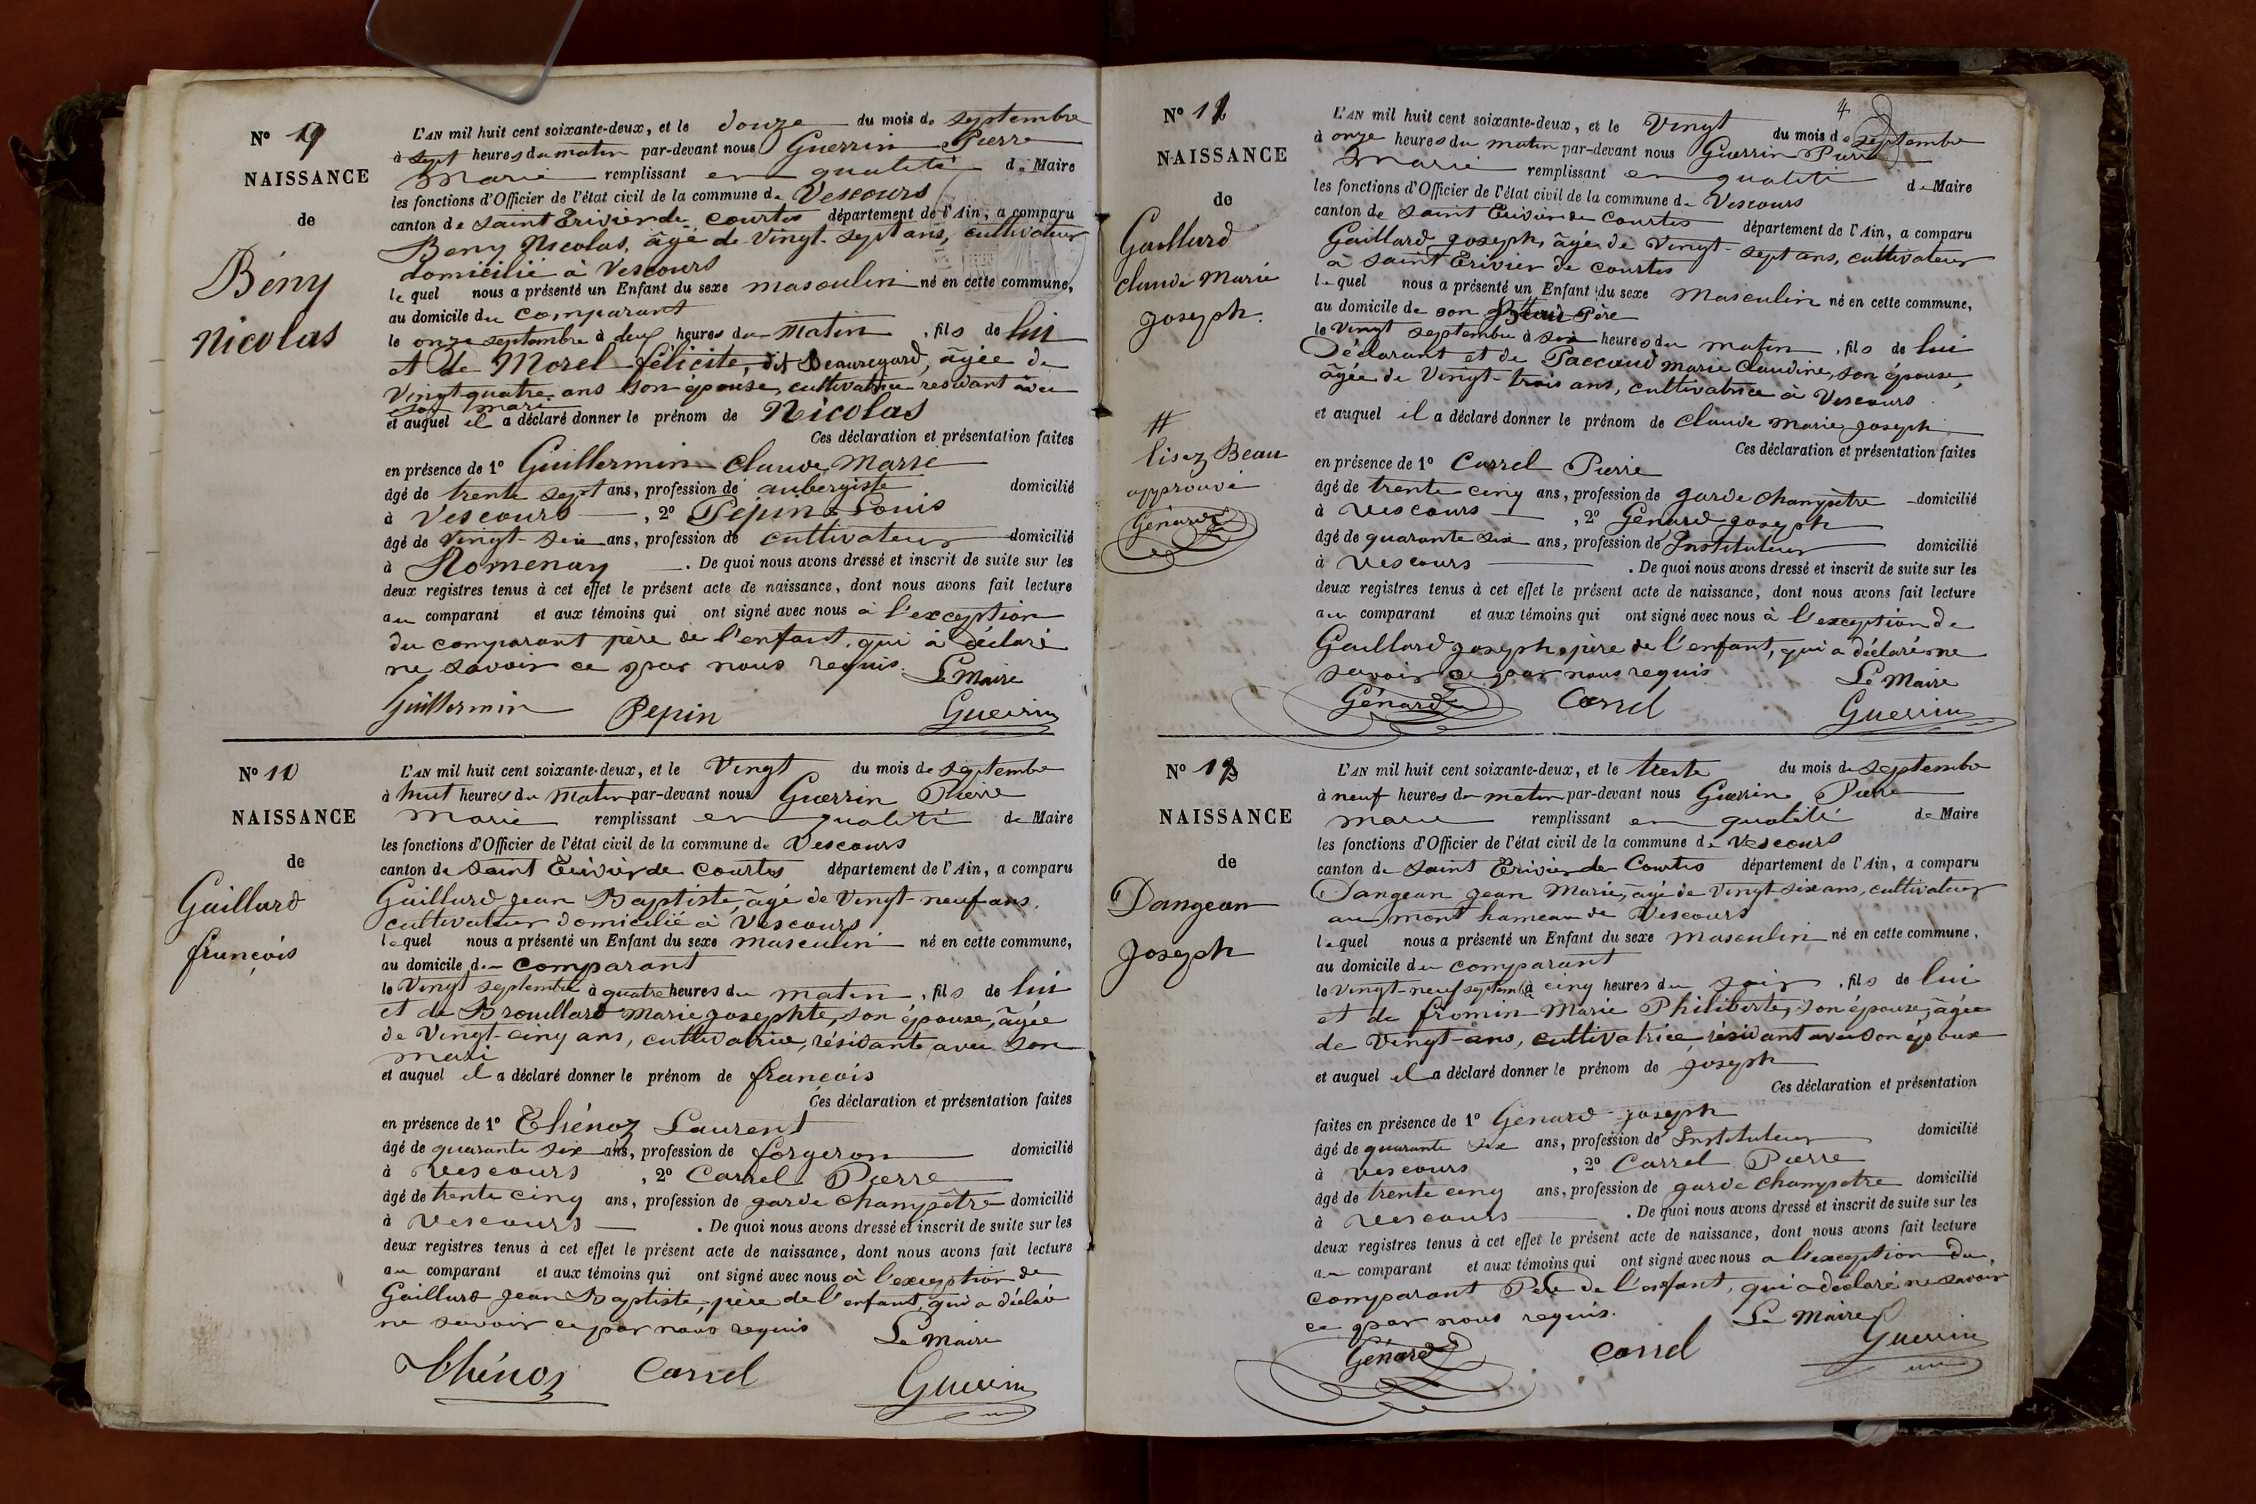 NAISSANCE
de
Bény
Nicolas
L'AN mil huit cent soixante-deux, et le douze du mois de septembre
à sept heures du matin par-devant nous Guerrin Pierre
Marie remplissant en qualité de Maire
les fonctions d'Officier de l'état civil de la commune de Vescours
canton de Saint Trivier de Courtes département de l'Ain, a comparu
Beny Nicolas, âgé de Vingt-sept ans, cultivateur
domicilié à Vescours
lequel nous a présenté un Enfant du sexe masculin né en cette commune,
au domicile du comparant
le onze septembre à deux heures du matin, fils de lui
et de Morel félicité, dit Beauregard, âgée de
Vingt quatre ans son épouse, cultivatrice residant avec
son mari
et auquel il a déclaré donner le prénom de Nicolas
Ces déclaration et présentation faites
en présence de 1° Guillermin Claude Marie
âgé de trente sept ans, profession de aubergiste domicilié
à Vescours, 2° Pepin Louis
âgé de Vingt-six ans, profession de cultivateur domicilié
à Romenay. De quoi nous avons dressé et inscrit de suite sur les
deux registres tenus à cet effet le présent acte de naissance, dont nous avons fait lecture
au comparant et aux témoins qui ont signé avec nous à l'exception
du comparant père de l'enfant, qui à déclaré
ne savoir ce par nous requis. Le Maire
Guillermin Pepin Guerrin
N° 11
NAISSANCE
de
Gaillard
françois
L'AN mil huit cent soixante-deux, et le Vingt du mois de septembre
à huit heures du matin par-devant nous Guerrin Pierre
Marie remplissant en qualité de Maire
les fonctions d'Officier de l'état civil de la commune de Vescours
canton de Saint Trivier de Courtes département de l'Ain, a comparu
Gaillard Jean Baptiste, âgé de Vingt-neuf ans,
cultivateur domicilié à Vescours
lequel nous a présenté un Enfant du sexe masculin né en cette commune,
au domicile du comparant
le Vingt septembre à quatre heures du matin, fils de lui
et de Brouillard Marie josephte, son épouse, âgée
de Vingt-cinq ans, cultivatrice, résidante avec son
mari
et auquel il a déclaré donner le prénom de françois
Ces déclaration et présentation faites
en présence de 1° Thénoz Laurent
âgé de quarante six ans, profession de forgeron domicilié
à Vescours, 2° Carrel Pierre
âgé de trente cinq ans, profession de garde champêtre domicilié
à Vescours. De quoi nous avons dressé et inscrit de suite sur les
deux registres tenus à cet effet le présent acte de naissance, dont nous avons fait lecture
au comparant et aux témoins qui ont signé avec nous à l'exception de
Gaillard Jean Baptiste, père de l'enfant, qui a déclaré
ne savoir ce par nous requis Le Maire
Thénoz Carrel Guerrin
4
N° 12
NAISSANCE
de
Gaillard
Claude Marie
Joseph.
#
lisez Beau
approuvé
Génard
L'AN mil huit cent soixante-deux, et le Vingt du mois de septembre
à onze heures du matin par-devant nous Guerrin Pierre
Marie remplissant en qualité de Maire
les fonctions d'Officier de l'état civil de la commune de Vescours
canton de Saint Trivier de Courtes département de l'Ain, a comparu
Gaillard joseph, âgé de Vingt-sept ans, cultivateur
à Saint Trivier de Courtes
lequel nous a présenté un Enfant du sexe Masculin né en cette commune,
au domicile de son # Père
le Vingt septembre à six heures du matin, fils de lui
Déclarant et de Paccaud Marie Claudine, son épouse,
âgée de Vingt-trois ans, cultivatrice à Vescours
et auquel il a déclaré donner le prénom de Claude Marie joseph
Ces déclaration et présentation faites
en présence de 1° Carrel Pierre
âgé de trente cinq ans, profession de garde champêtre domicilié
à Vescours, 2° Génard joseph
âgé de quarante six ans, profession de Instituteur domicilié
à Vescours. De quoi nous avons dressé et inscrit de suite sur les
deux registres tenus à cet effet le présent acte de naissance, dont nous avons fait lecture
au comparant et aux témoins qui ont signé avec nous à l'exception de
Gaillard joseph, père de l'enfant, qui a déclaré ne
savoir ce par nous requis Le Maire
Génard Carrel Guerrin
N° 13
NAISSANCE
de
Dangean
Joseph
L'AN mil huit cent soixante-deux, et le trente du mois de septembre
à neuf heures du matin par-devant nous Guerrin Pierre
Marie remplissant en qualité de Maire
les fonctions d'Officier de l'état civil de la commune de Vescours
canton de Saint Trivier de Courtes département de l'Ain, a comparu
Dangean Jean Marie, âgé de Vingt-six ans, cultivateur
au mont hameau de Vescours
lequel nous a présenté un Enfant du sexe Masculin né en cette commune,
au domicile du comparant
le vingt-neuf septembre à cinq heures du soir, fils de lui
et de fromin Marie Philiberte, son épouse, âgée
de Vingt-ans, cultivatrice, résidant avec son époux
et auquel il a déclaré donner le prénom de joseph
Ces déclaration et présentation
faites en présence de 1° Génard joseph
âgé de quarante six ans, profession de Instituteur domicilié
à Vescours, 2° Carrel Pierre
âgé de trente cinq ans, profession de garde champetre domicilié
à Vescours. De quoi nous avons dressé et inscrit de suite sur les
deux registres tenus à cet effet le présent acte de naissance, dont nous avons fait lecture
au comparant et aux témoins qui ont signé avec nous a l'exception du
comparant Père de l'enfant, qui a declaré ne savoir
ce par nous requis. Le Maire
Génard Carrel Guerrin